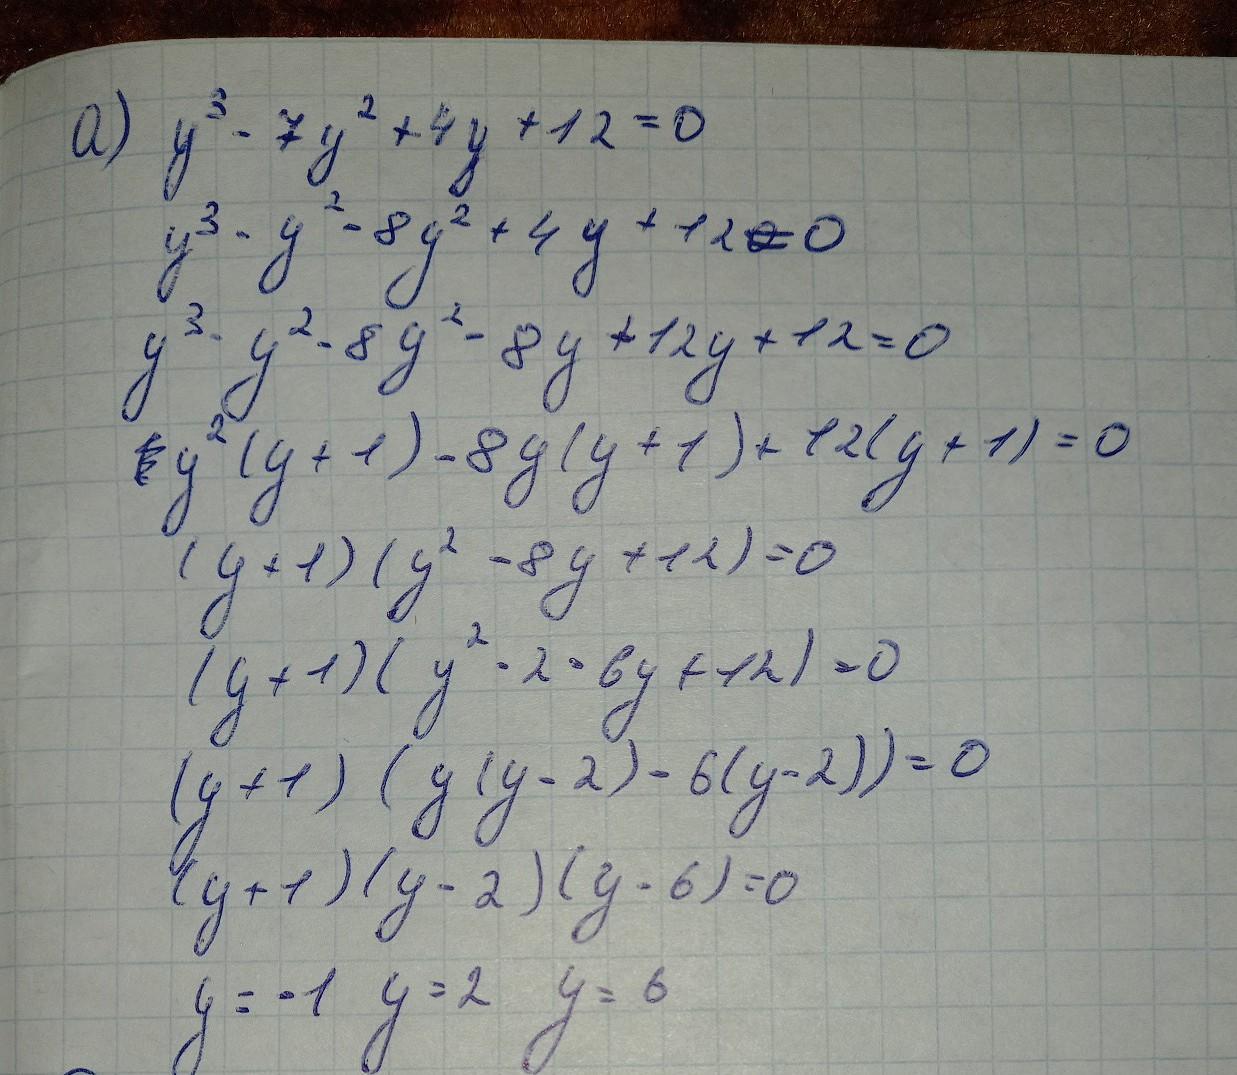 а) y³ - 7y² + 4y + 12 = 0
y³ - y² - 8y² + 4y + 12 = 0
y³ - y² - 8y² - 8y + 12y + 12 = 0
y²(y + 1) - 8y(y + 1) + 12(y + 1) = 0
(y + 1)(y² - 8y + 12) = 0
(y + 1)(y² - 2 - 6y + 12) = 0
(y + 1)(y(y - 2) - 6(y - 2)) = 0
(y + 1)(y - 2)(y - 6) = 0
y = -1 y = 2 y = 6